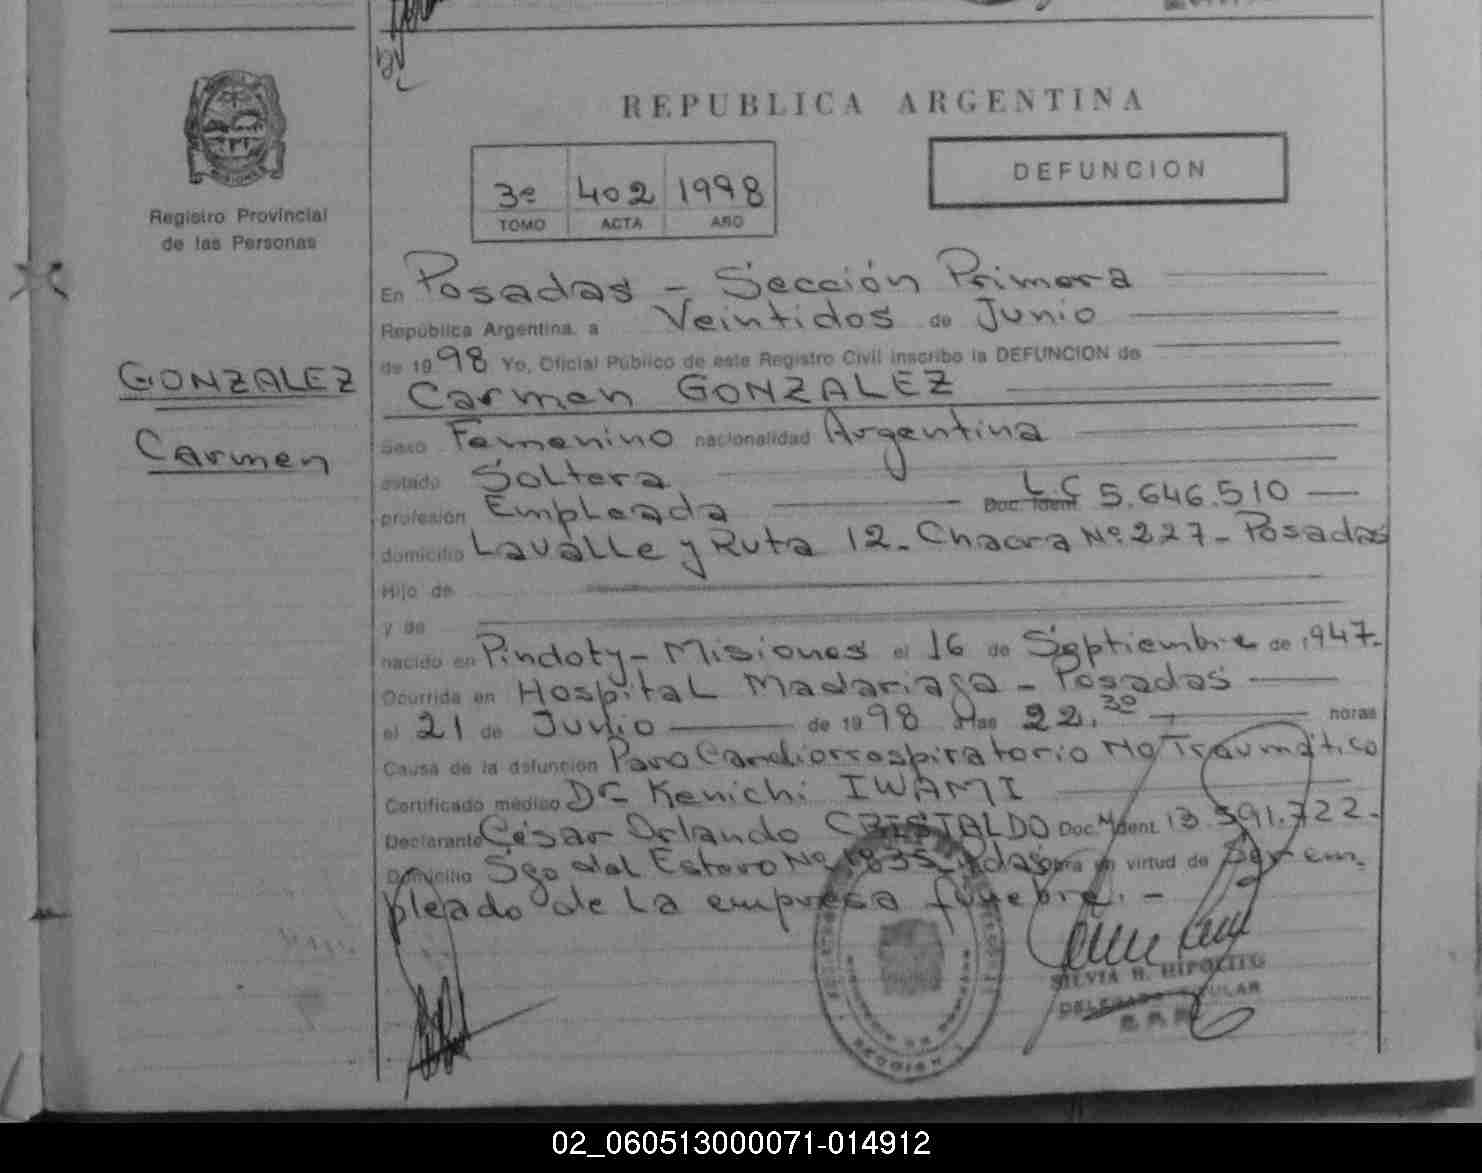 REPUBLICA ARGENTINA
MISIONES
Registro Provincial
de las Personas
3º 402 1998
TOMO ACTA AÑO
DEFUNCION
GONZALEZ
Carmen
En Posadas - Sección Primera
República Argentina, a Veintidos de Junio
de 1998 Yo, Oficial Público de este Registro Civil inscribo la DEFUNCION de
Carmen GONZALEZ
Sexo Femenino nacionalidad Argentina
estado Soltera
profesión Empleada Doc. Ident. L.C 5.646.510
domicilio Lavalle y Ruta 12. Chacra Nº 227 - Posadas
Hijo de
y de
nacido en Pindoty - Misiones el 16 de Septiembre de 1947.
Ocurrida en Hospital Madariaga - Posadas
el 21 de Junio de 1998 Has 22.30 horas
Causa de la defunción Paro Cardiorrespiratorio No Traumático
Certificado médico Dr. Kenichi IWAMI
Declarante César Orlando CRISTALDO Doc. Ident. 13.591.722.
Domicilio Sgo del Estero Nº 1835 Pdas obra en virtud de Ser em
pleado de la empresa fúnebre. -
SILVIA H. HIPOLITO
DELEGADO TITULAR
02_060513000071-014912